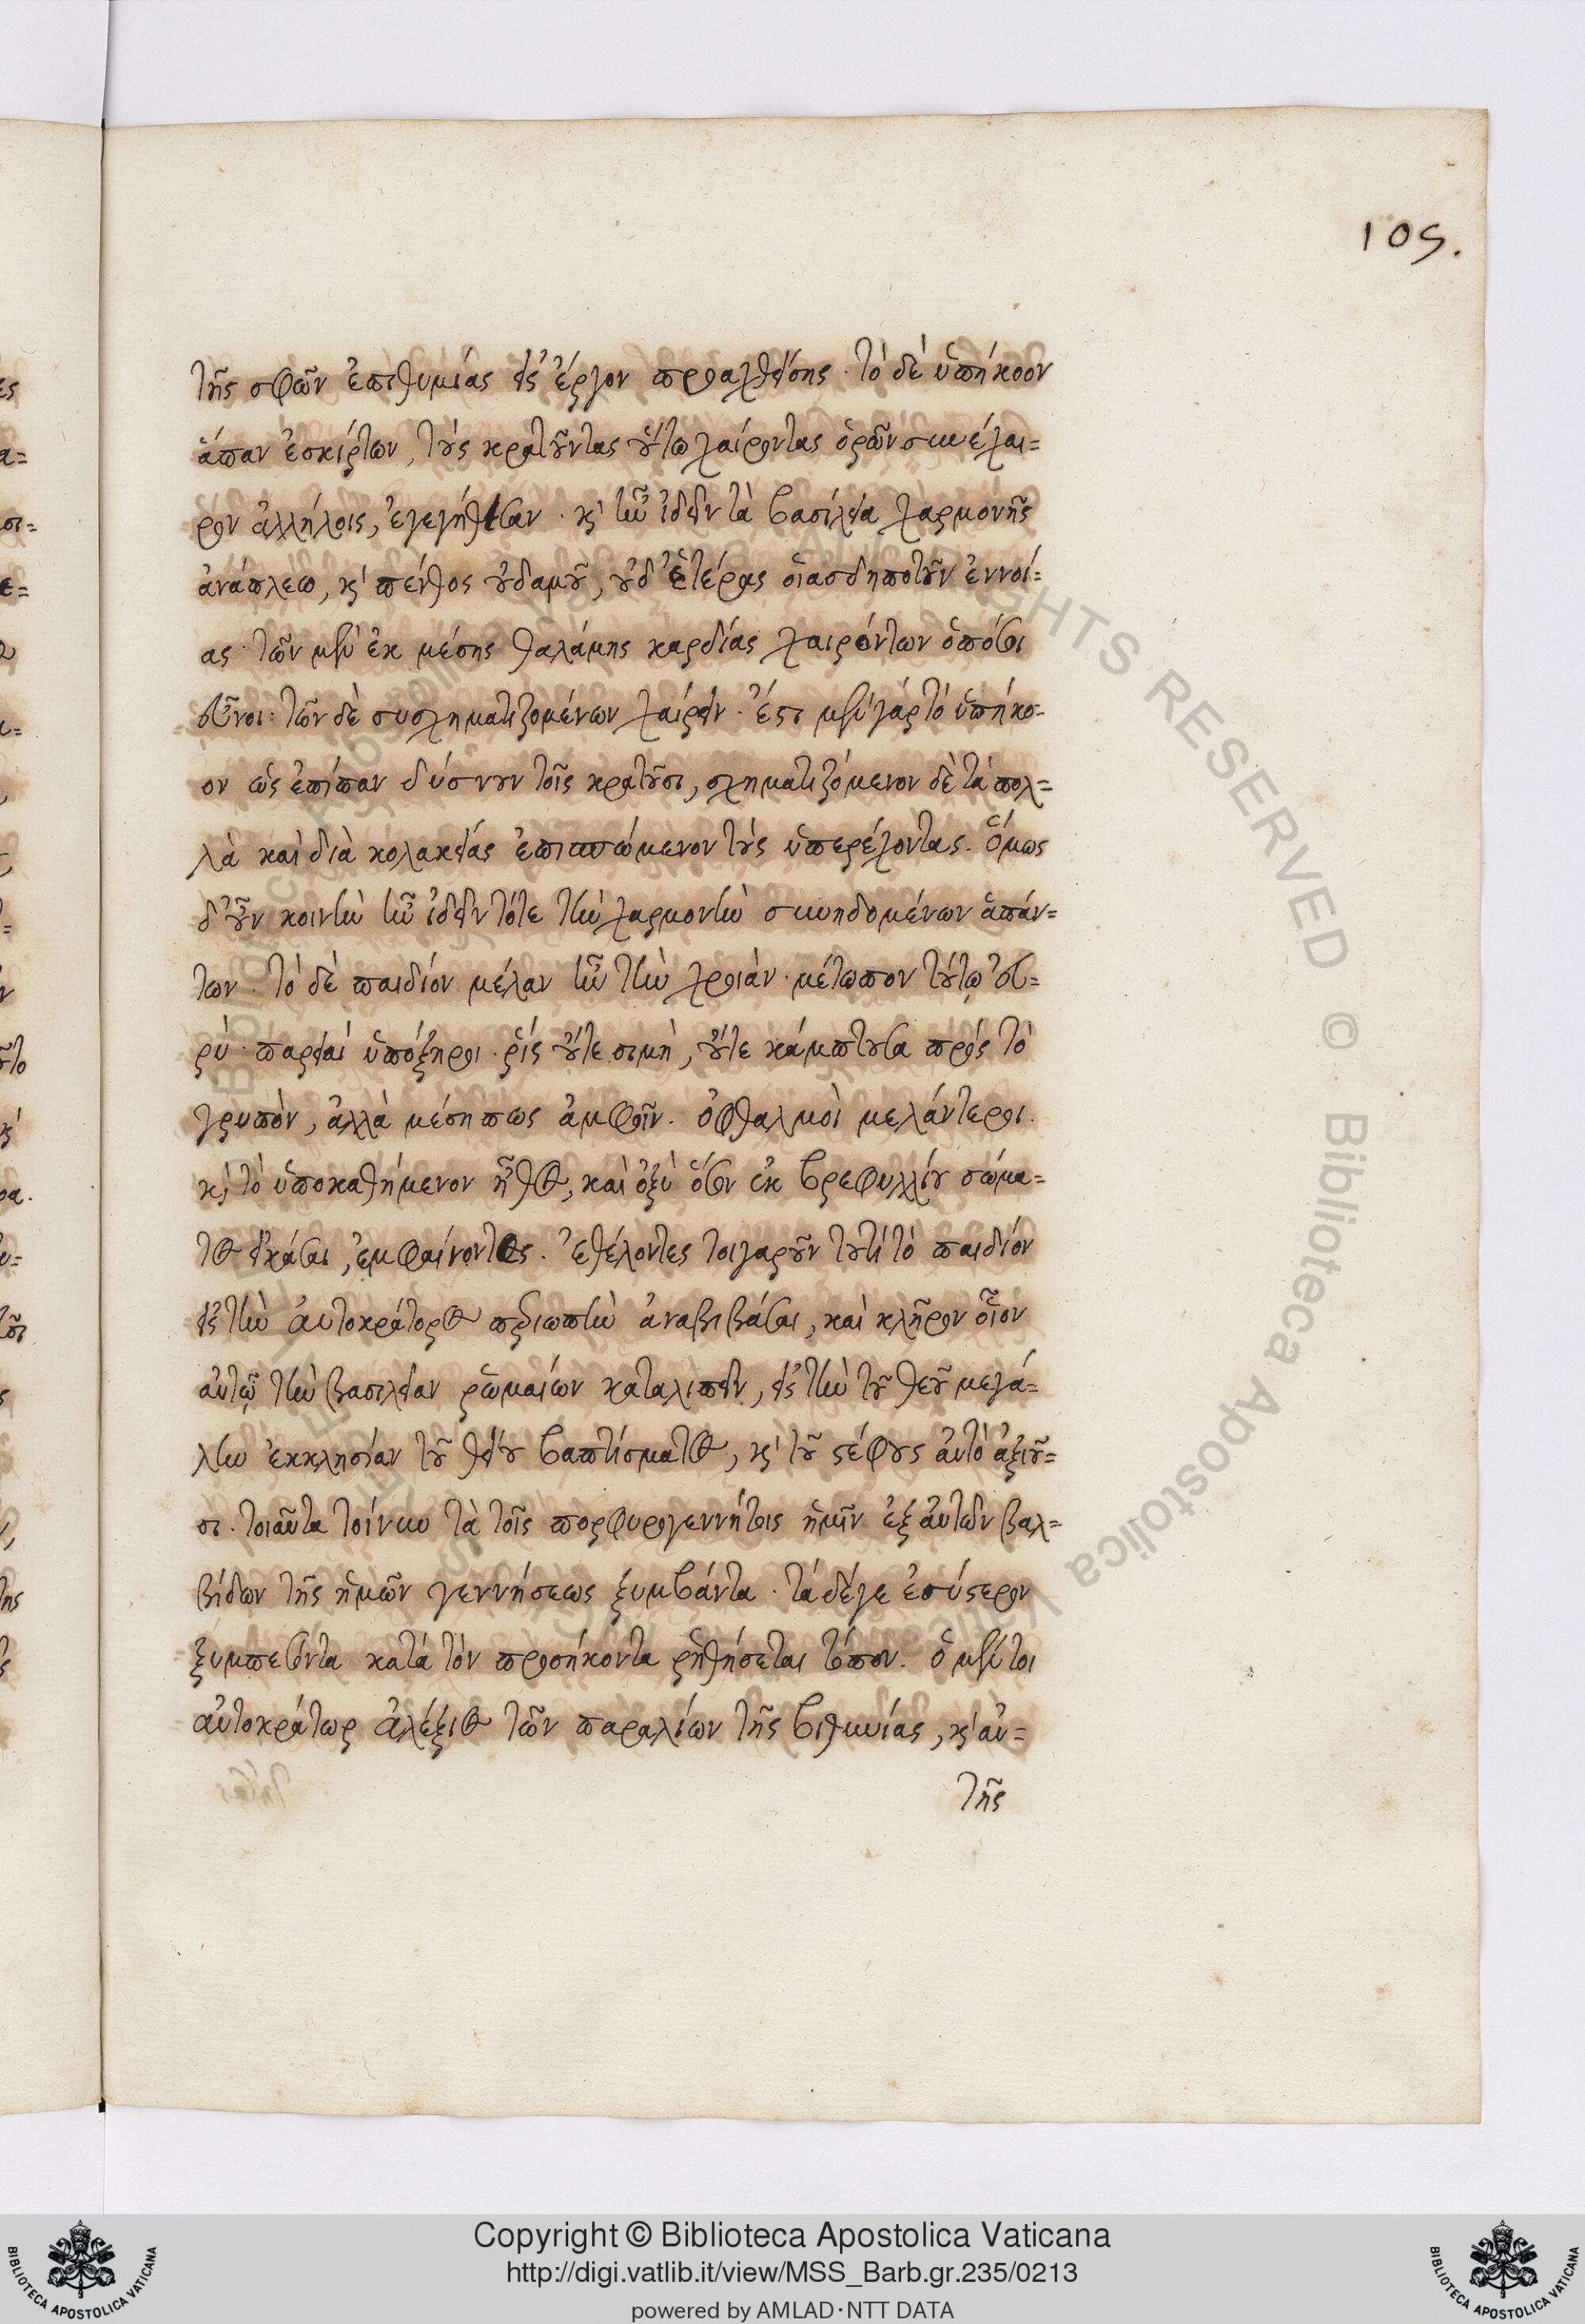 105.
τῆς σφῶν ἐπιθυμίας εἰς ἔργον προαχθείσης. τὸ δὲ ὑπήκοον
ἅπαν ἐσκίρτων, τοὺς κρατοῦντας οὕτω χαίροντας ὁρῶν συνέχαι=
ρον ἀλλήλοις, ἐγεγήθεσαν. κ̀ ἦν ἰδεῖν τὰ βασίλεια χαρμονῆς
ἀνάπλεω, κ̀ πένθος οὐδαμοῦ, οὐδ' ἑτέρας οἱασδηποτοῦν ἐννοί=
ας· τῶν μὲν ἐκ μέσης θαλάμης καρδίας χαιρόντων ὁπόσοι
εὖνοι· τῶν δὲ συσχηματιζομένων χαίρειν. ἔστι μὲν γὰρ τὸ ὑπήκο-
ον ὡς ἐπίπαν δύσνουν τοῖς κρατοῦσι, σχηματιζόμενον δὲ τὰ πολ=
λὰ καὶ διὰ κολακείας ἐπισπώμενον τοὺς ὑπερέχοντας. ὅμως
δ' οὖν κοινὴν ἦν ἰδεῖν τότε τὴν χαρμονὴν συνηδομένων ἁπάν=
των. τὸ δὲ παιδίον μέλαν ἦν τὴν χροιάν· μέτωπον τούτῳ εὐ=
ρύ· παρειαὶ ὑπόξηροι· ῥὶς οὔτε σιμὴ, οὔτε κάμπτουσα πρὸς τὸ
γρυπὸν, ἀλλὰ μέση πως ἀμφοῖν. ὀφθαλμοὶ μελάντεροι.
κ̀ τὸ ὑποκαθήμενον ἦθος, καὶ ὀξὺ ὅσον ἐκ βρεφυλλίου σώμα=
τος εἰκάσαι, ἐμφαίνοντες. ἐθέλοντες τοιγαροῦν τουτὶ τὸ παιδίον
εἰς τὴν αὐτοκράτορος περιωπὴν ἀναβιβάσαι, καὶ κλῆρον οἷον
αὐτῷ τὴν βασιλείαν ῥωμαίων καταλιπεῖν, εἰς τὴν τοῦ θεοῦ μεγά=
λην ἐκκλησίαν τοῦ θείου βαπτίσματος, κ̀ τοῦ στέφους αὐτὸ ἀξιοῦ=
σι. τοιαῦτα τοίνυν τὰ τοῖς πορφυρογεννήτοις ἡμῖν ἐξ αὐτῶν βαλ=
βίδων τῆς ἡμῶν γεννήσεως ξυμβάντα. τὰ δέγε ἐσύστερον
ξυμπεσόντα κατὰ τὸν προσήκοντα ῥηθήσεται τόπον. ὁ μέντοι
αὐτοκράτωρ ἀλέξιος τῶν παραλίων τῆς βιθυνίας, κ̀ αὐ=
τῆς
Copyright © Biblioteca Apostolica Vaticana
http://digi.vatlib.it/view/MSS_Barb.gr.235/0213
powered by AMLAD·NTT DATA